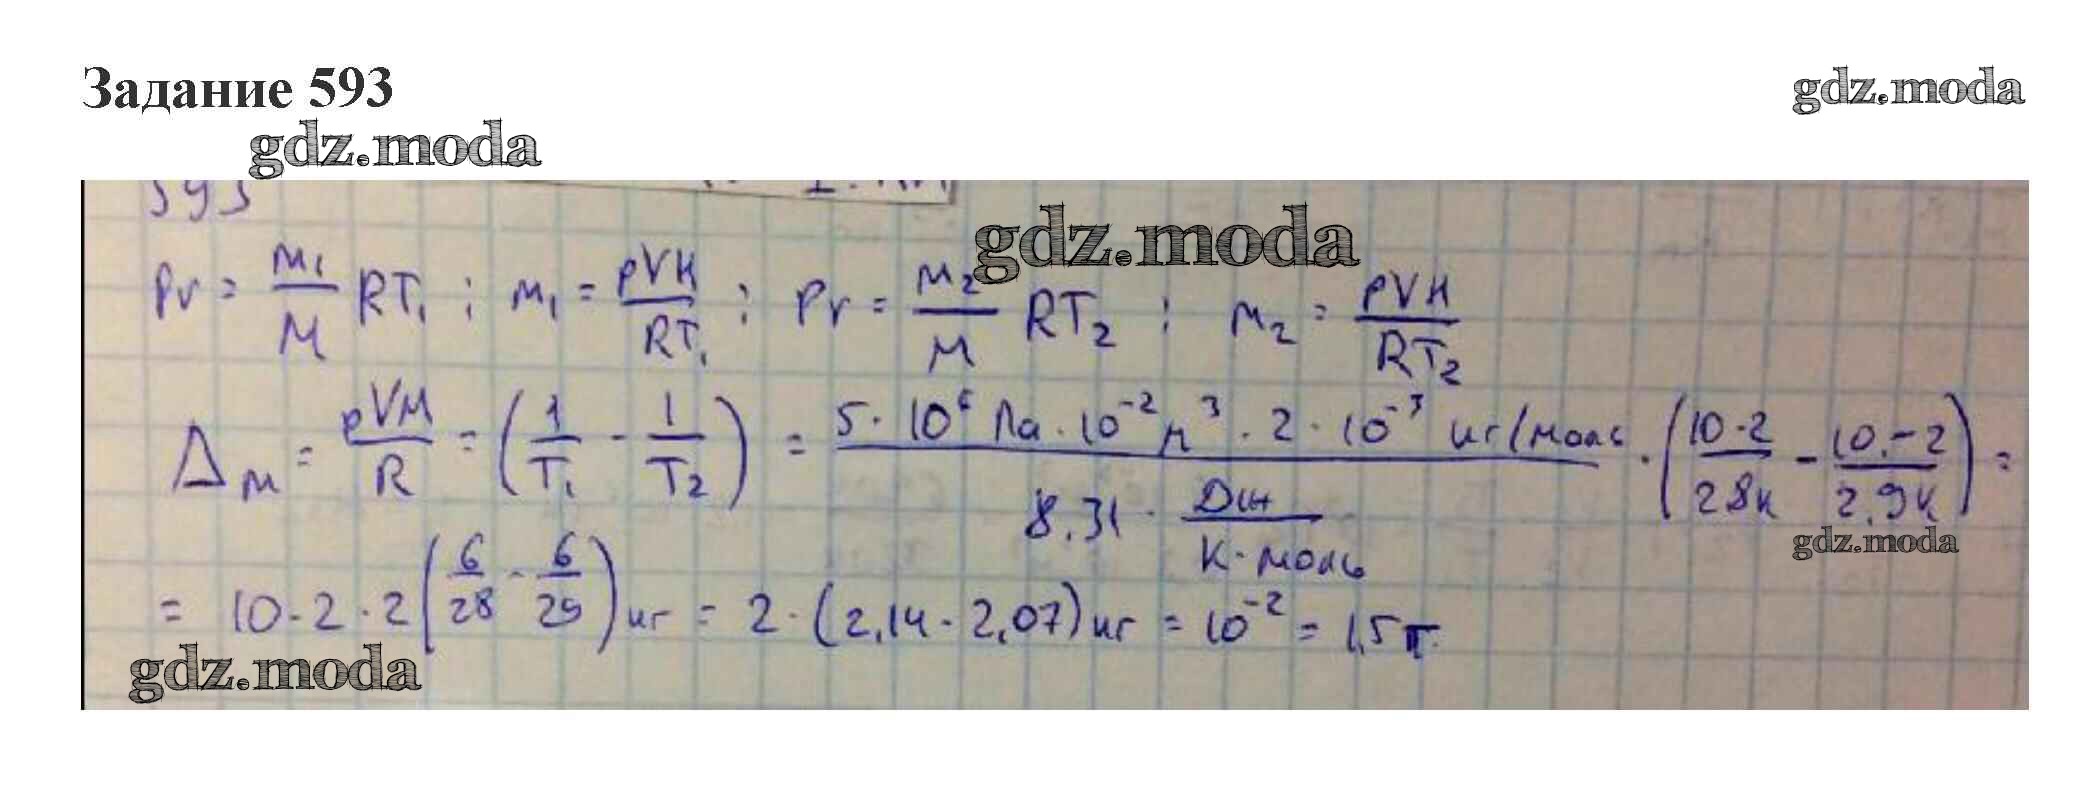 Задание 593
gdz.moda
gdz.moda
593
gdz.moda
PV = m₁/M RT₁ ; m₁ = pVM/RT₁ ; PV = m₂/M RT₂ ; m₂ = pVM/RT₂
Δm = pVM/R = (1/T₁ - 1/T₂) = 5·10⁶ Па·10⁻² м³·2·10⁻³ кг/моль / 8.31· Дж/К·моль · (10·2/28к - 10.-2/2,9к) =
gdz.moda
= 10-2·2(6/28 - 6/29)кг = 2·(2,14-2,07)кг = 10⁻² = 1,5 г.
gdz.moda